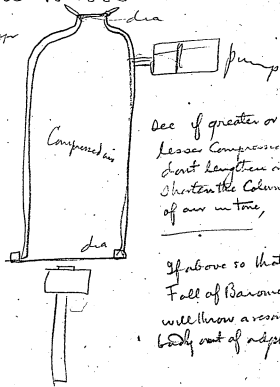 dia
pump
Compressed air
See if greater or
lesser Compression
dont lengthen or
Shorten the Column
of air in tone,
dia
If above so that
Fall of Barome
will throw a reson
body out of adjus